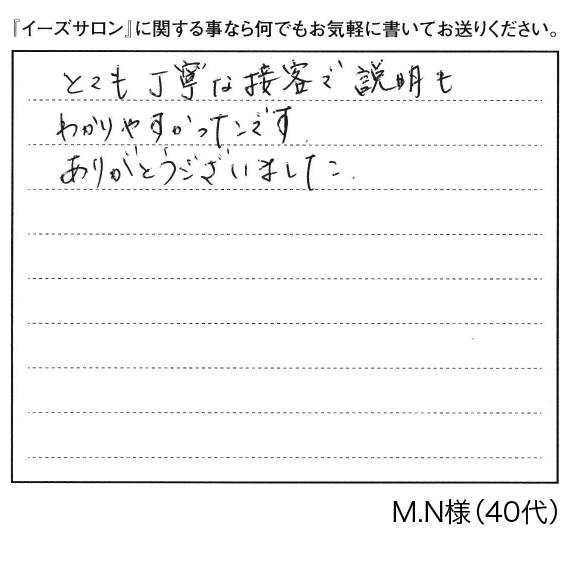 『イーズサロン』に関する事なら何でもお気軽に書いてお送りください。
とても丁寧な接客で説明も
わかりやすかったです.
ありがとうございました.
M.N様（40代）